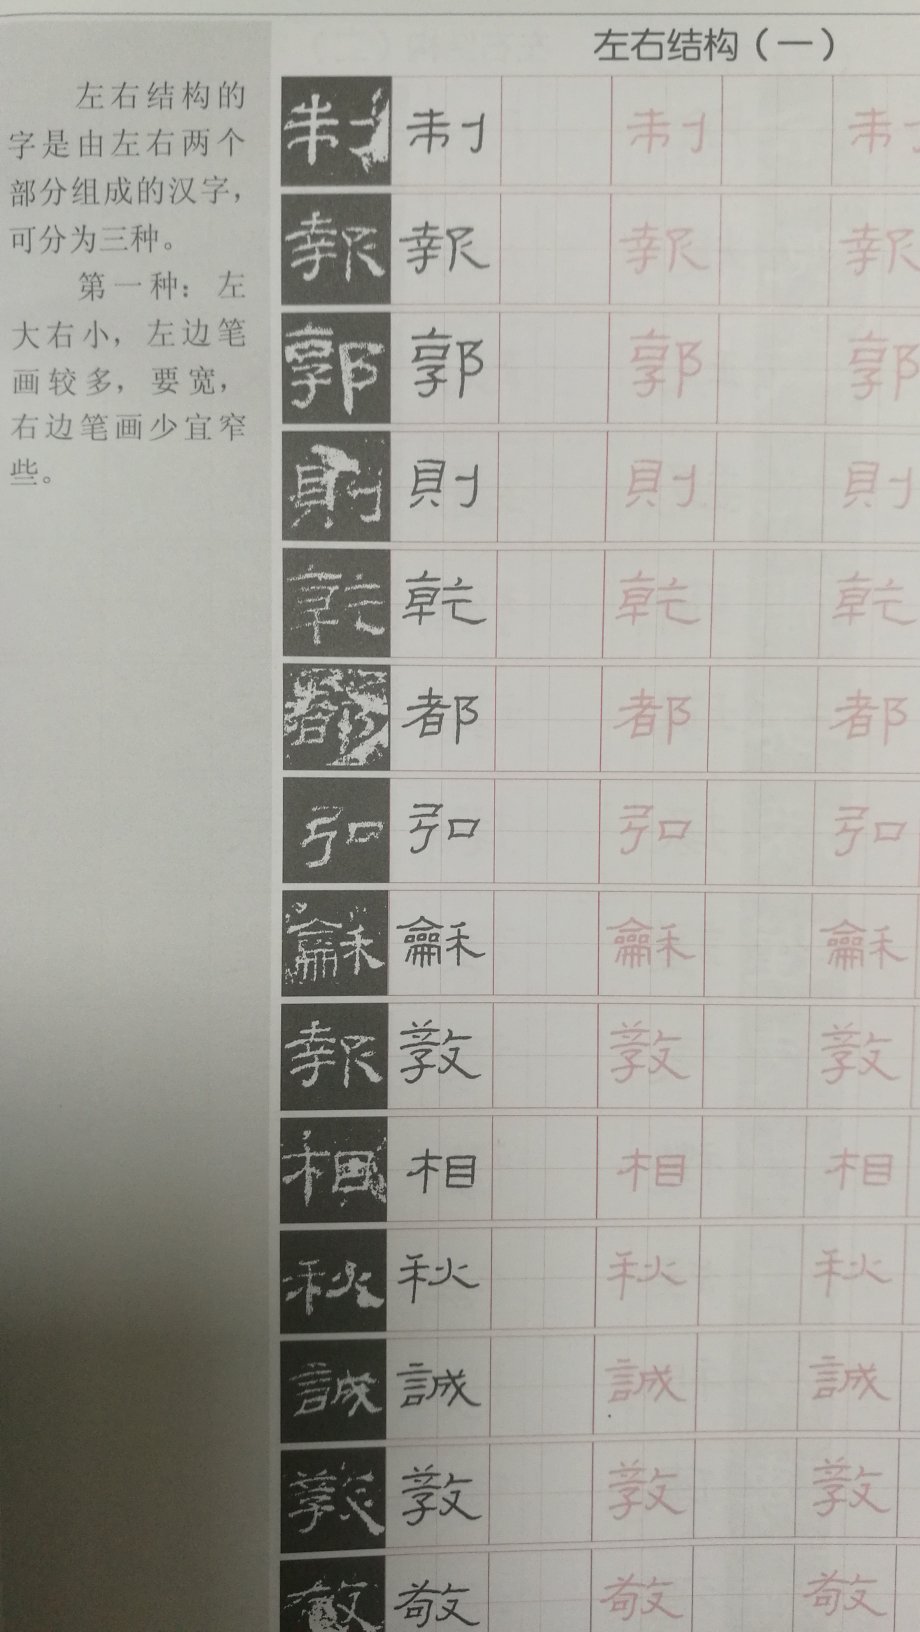 左右结构（一）
左右结构的
字是由左右两个
部分组成的汉字，
可分为三种。
第一种：左
大右小，左边笔
画较多，要宽，
右边笔画少宜窄
些。
制 制 制 制
報 報 報 報
郭 郭 郭 郭
則 則 則 則
乾 乾 乾 乾
都 都 都 都
弘 弘 弘 弘
龢 龢 龢 龢
報 教 教 教
相 相 相 相
秋 秋 秋 秋
誠 誠 誠 誠
教 教 教 教
敬 敬 敬 敬